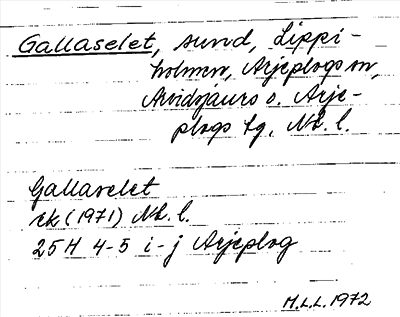 Gallaselet, sund, Lippi-
holmen, Arjeplogs sn,
Arvidsjaurs o. Arje-
plogs tg, Nb. l.
Gallaselet
ek (1971) Nb. l.
25H 4-5 i-j Arjeplog
M.L.L. 1972